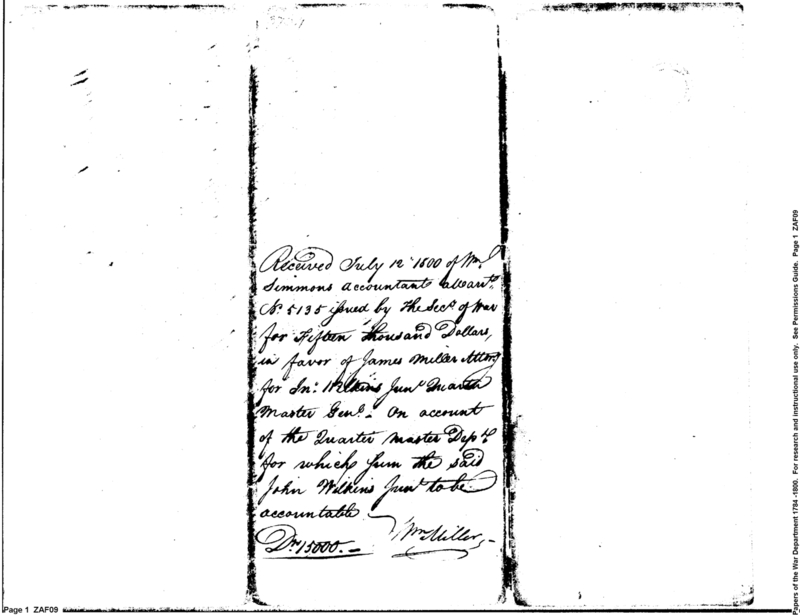 Received July 12 1800 of Wm
Simmons accountant a Warrt
No. 5135 issued by the Secy of War
for Fifteen thousand Dollars,
in favor of James Miller Attorny
for Jn: Wilkins Junr Quarter
Master Genl. - On account
of the Quarter Master Dept.
for which sum the said
John Wilkins Junr to be
accountable
Drs 15000. -
Wm Miller, -
Page 1 ZAF09
Papers of the War Department 1784 -1800. For research and instructional use only. See Permissions Guide. Page 1 ZAF09